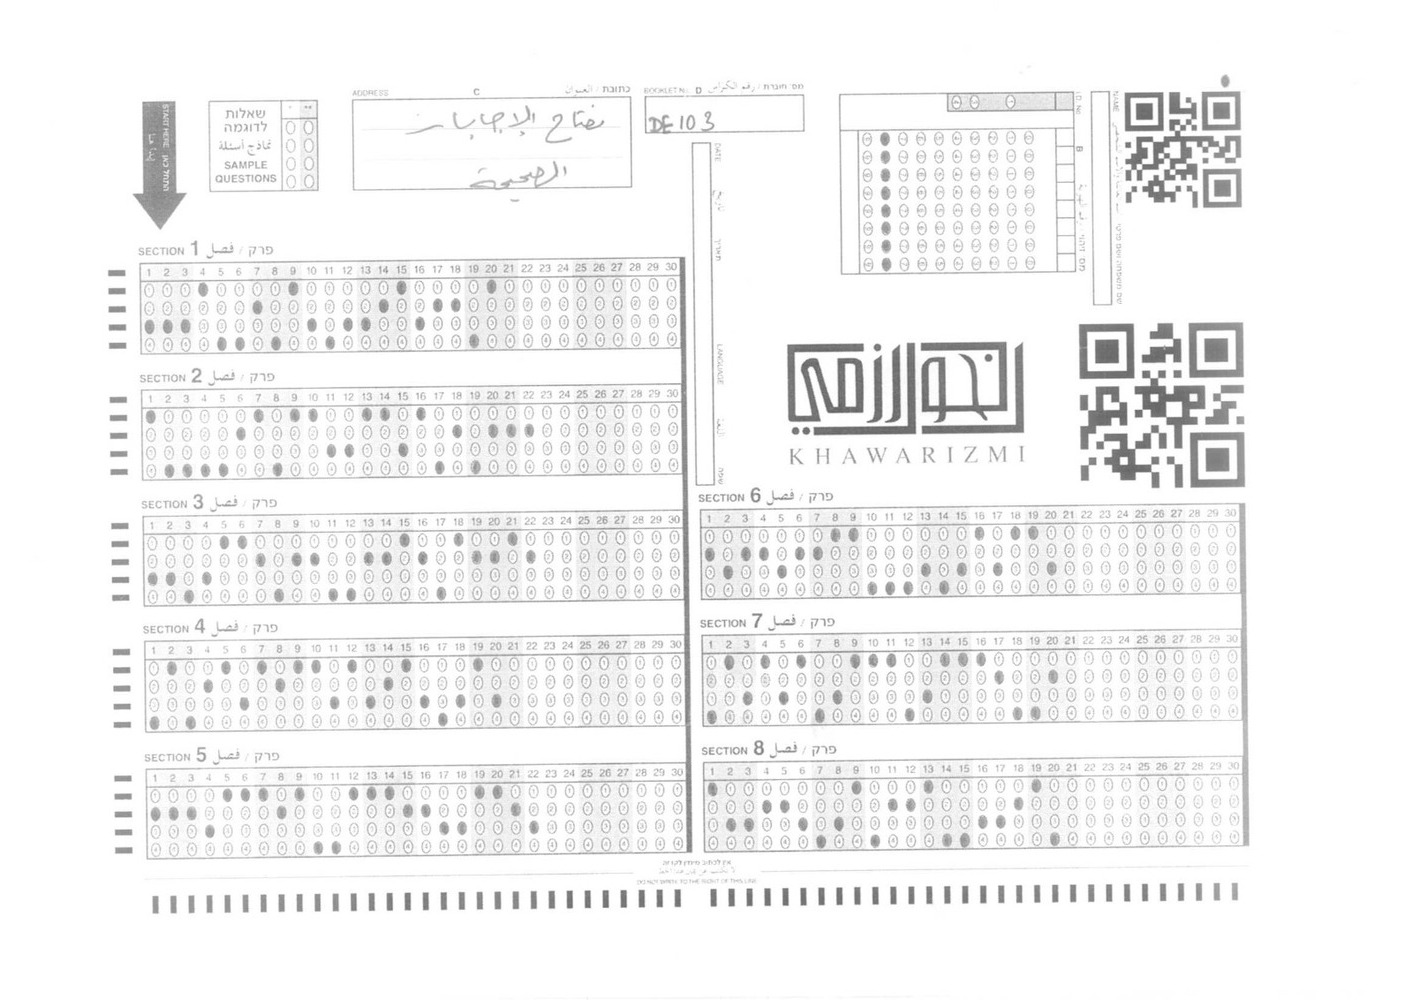 START HERE
שאלות
לדוגמה
نماذج أسئلة
SAMPLE
QUESTIONS
ADDRESS C כתובת / العنوان
مفتاح الإجابات
الصحيحة
BOOKLET No. D מס׳ חוברת / رقم الكراس
DE 103
DATE
LANGUAGE
שפה
I.D. No.
B
NAME
خوارزمي
KHAWARIZMI
SECTION 1 פרק / فصل
1 2 3 4 5 6 7 8 9 10 11 12 13 14 15 16 17 18 19 20 21 22 23 24 25 26 27 28 29 30
SECTION 2 פרק / فصل
1 2 3 4 5 6 7 8 9 10 11 12 13 14 15 16 17 18 19 20 21 22 23 24 25 26 27 28 29 30
SECTION 3 פרק / فصل
1 2 3 4 5 6 7 8 9 10 11 12 13 14 15 16 17 18 19 20 21 22 23 24 25 26 27 28 29 30
SECTION 4 פרק / فصل
1 2 3 4 5 6 7 8 9 10 11 12 13 14 15 16 17 18 19 20 21 22 23 24 25 26 27 28 29 30
SECTION 5 פרק / فصل
1 2 3 4 5 6 7 8 9 10 11 12 13 14 15 16 17 18 19 20 21 22 23 24 25 26 27 28 29 30
SECTION 6 פרק / فصل
1 2 3 4 5 6 7 8 9 10 11 12 13 14 15 16 17 18 19 20 21 22 23 24 25 26 27 28 29 30
SECTION 7 פרק / فصل
1 2 3 4 5 6 7 8 9 10 11 12 13 14 15 16 17 18 19 20 21 22 23 24 25 26 27 28 29 30
SECTION 8 פרק / فصل
1 2 3 4 5 6 7 8 9 10 11 12 13 14 15 16 17 18 19 20 21 22 23 24 25 26 27 28 29 30
אין לכתוב מימין לקו זה
DO NOT WRITE TO THE RIGHT OF THIS LINE